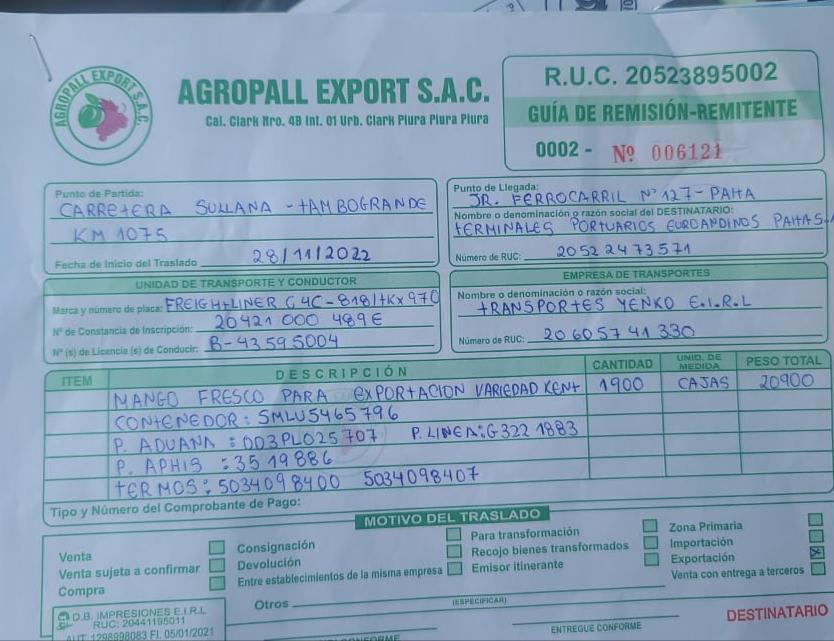 AGROPALL EXPORT S.A.C.
AGROPALL EXPORT S.A.C.
Cal. Clark Nro. 4B Int. 01 Urb. Clark Piura Piura Piura
R.U.C. 20523895002
GUÍA DE REMISIÓN-REMITENTE
0002 - Nº 006121
Punto de Partida:
CARRETERA SULLANA - TAMBOGRANDE
KM 1075
Fecha de Inicio del Traslado 28/11/2022
Punto de Llegada:
JR. FERROCARRIL Nº 127 - PAITA
Nombre o denominación o razón social del DESTINATARIO:
TERMINALES PORTUARIOS EUROANDINOS PAITA S.A
Número de RUC: 20522473571
UNIDAD DE TRANSPORTE Y CONDUCTOR
Marca y número de placa: FREIGHTLINER G4C-818/TKX970
Nº de Constancia de Inscripción: 20421 000 489E
Nº (s) de Licencia (s) de Conducir: B-43595004
EMPRESA DE TRANSPORTES
Nombre o denominación o razón social:
TRANSPORTES YENKO E.I.R.L
Número de RUC: 20605741330
ITEM DESCRIPCIÓN CANTIDAD UNID. DE MEDIDA PESO TOTAL
MANGO FRESCO PARA EXPORTACION VARIEDAD KENT 1900 CAJAS 20900
CONTENEDOR: SMLU5465796
P. ADUANA : 003PL025707 P. LINEA: G3221883
P. APHIS : 3519886
TERMOS: 5034098400 5034098407
Tipo y Número del Comprobante de Pago:
MOTIVO DEL TRASLADO
Venta
Venta sujeta a confirmar
Compra
Consignación
Devolución
Entre establecimientos de la misma empresa
Para transformación
Recojo bienes transformados
Emisor itinerante
Zona Primaria
Importación
Exportación X
Venta con entrega a terceros
Otros
(ESPECIFICAR)
D.B. IMPRESIONES E.I.R.L
RUC: 20441195011
AUT. 1298998083 FI. 05/01/2021
CONFORME
ENTREGUE CONFORME
DESTINATARIO